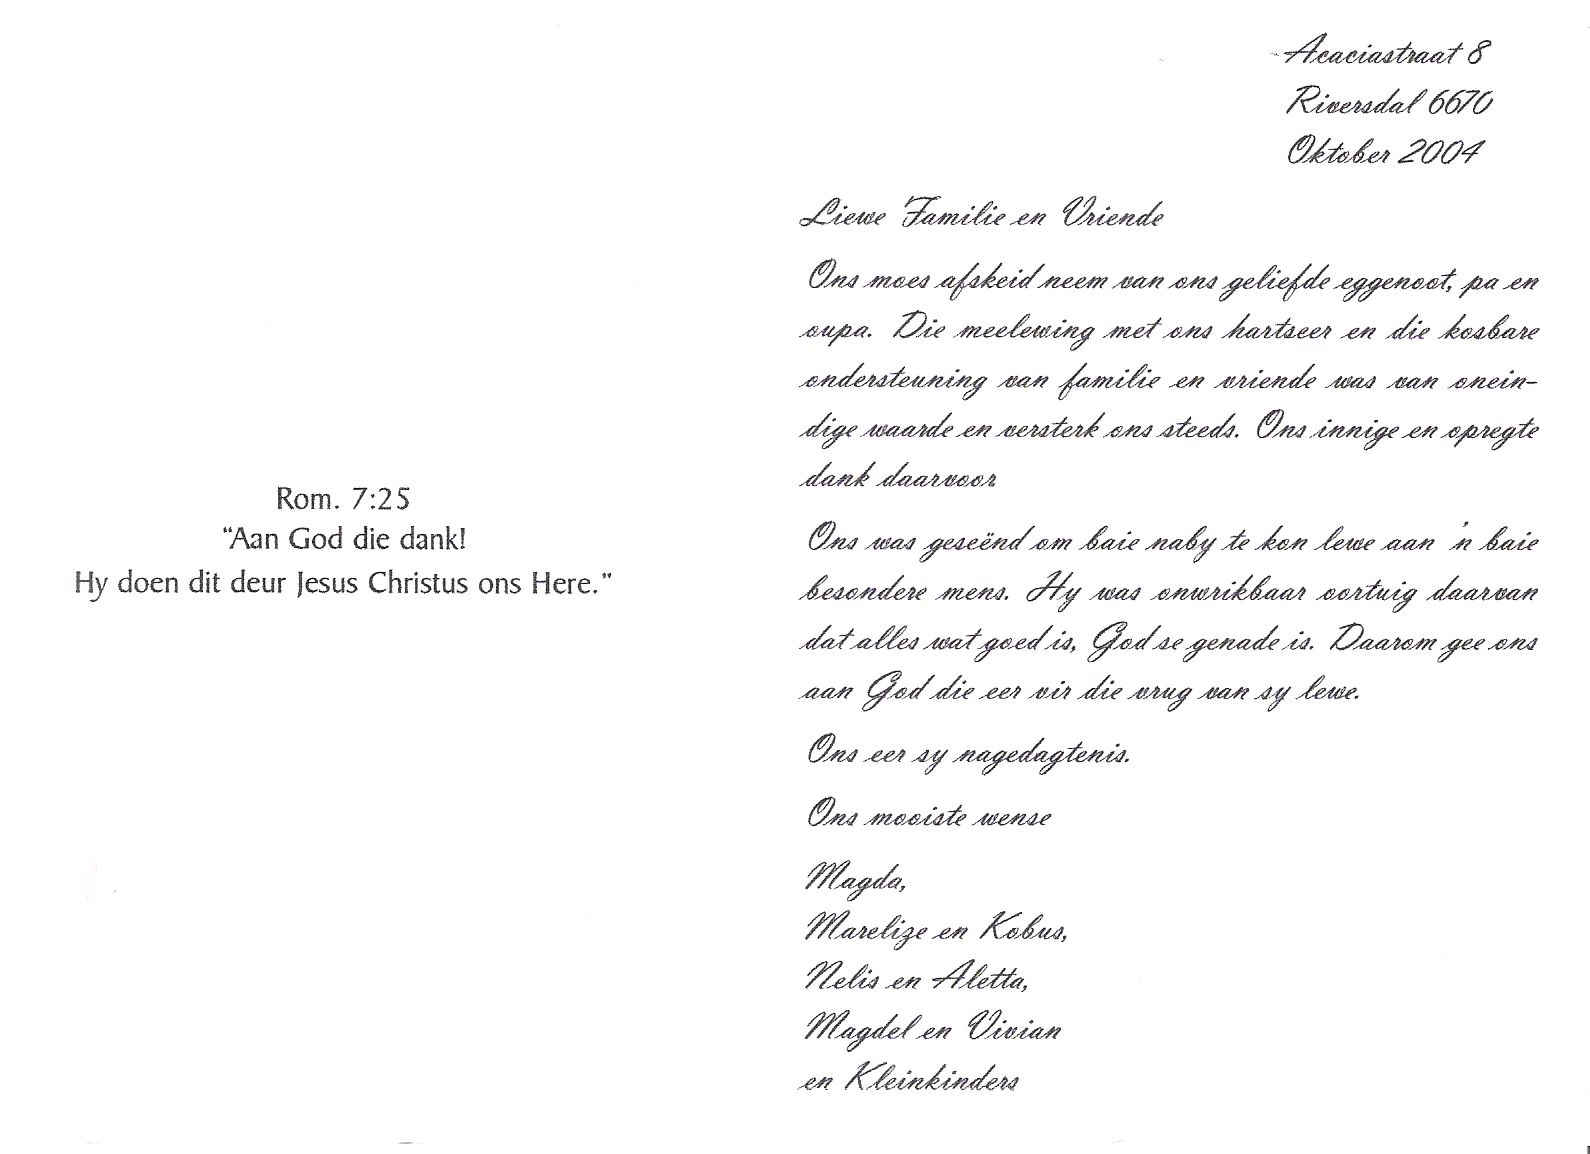 Rom. 7:25
"Aan God die dank!
Hy doen dit deur Jesus Christus ons Here."
Acaciastraat 8
Riversdal 6670
Oktober 2004
Liewe Familie en Vriende
Ons moes afskeid neem van ons geliefde eggenoot, pa en
oupa. Die meelewing met ons hartseer en die kosbare
ondersteuning van familie en vriende was van onein-
dige waarde en versterk ons steeds. Ons innige en opregte
dank daarvoor
Ons was geseënd om baie naby te kon lewe aan 'n baie
besondere mens. Hy was onwrikbaar oortuig daarvan
dat alles wat goed is, God se genade is. Daarom gee ons
aan God die eer vir die vrug van sy lewe.
Ons eer sy nagedagtenis.
Ons mooiste wense
Magda,
Marelize en Kobus,
Nelis en Aletta,
Magdel en Vivian
en Kleinkinders